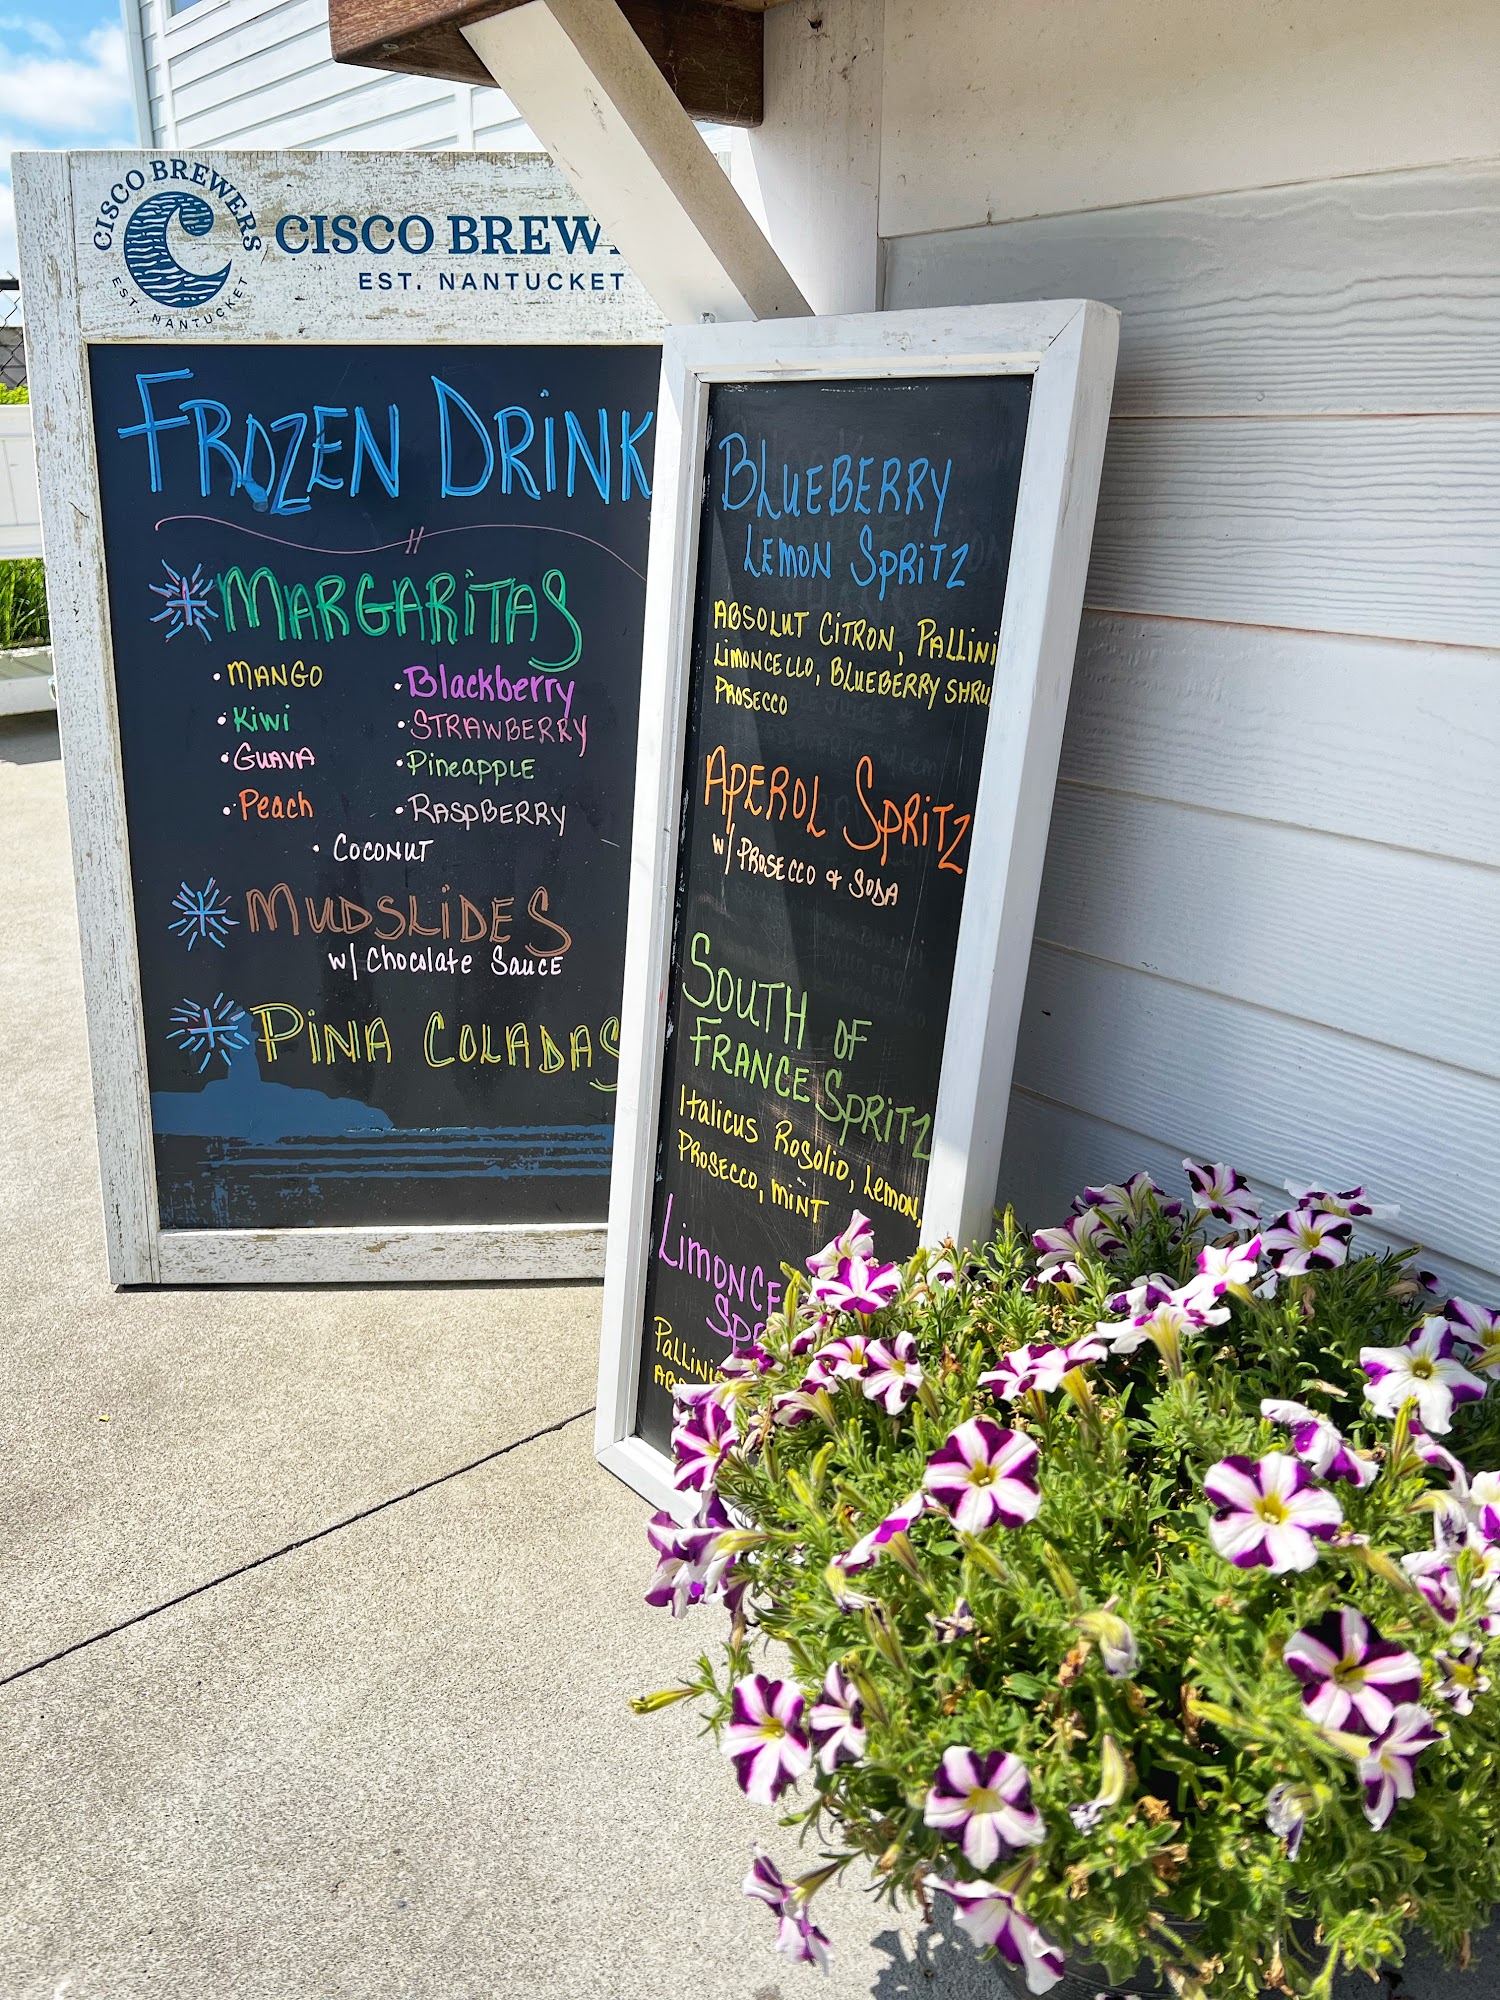 CISCO BREWERS
EST. NANTUCKET
CISCO
EST. NANTUCKET
FROZEN DRINK
MARGARITAS
• MANGO
• Kiwi
• GUAVA
• Peach
• Blackberry
• STRAWBERRY
• PineAPPLE
• RASPBERRY
• COCONUT
MUDSLIDES
w/ Chocolate SAUCE
PINA COLADAS
BLUEBERRY
LEMON SPRITZ
ABSOLUT CITRON, PALLINI
LIMONCELLO, BLUEBERRY
PROSECCO
APEROL SPRITZ
w/ PROSECCO & SODA
SOUTH OF
FRANCE SPRITZ
Italicus Rosolio, Lemon,
PROSECCO, MINT
PALLINI